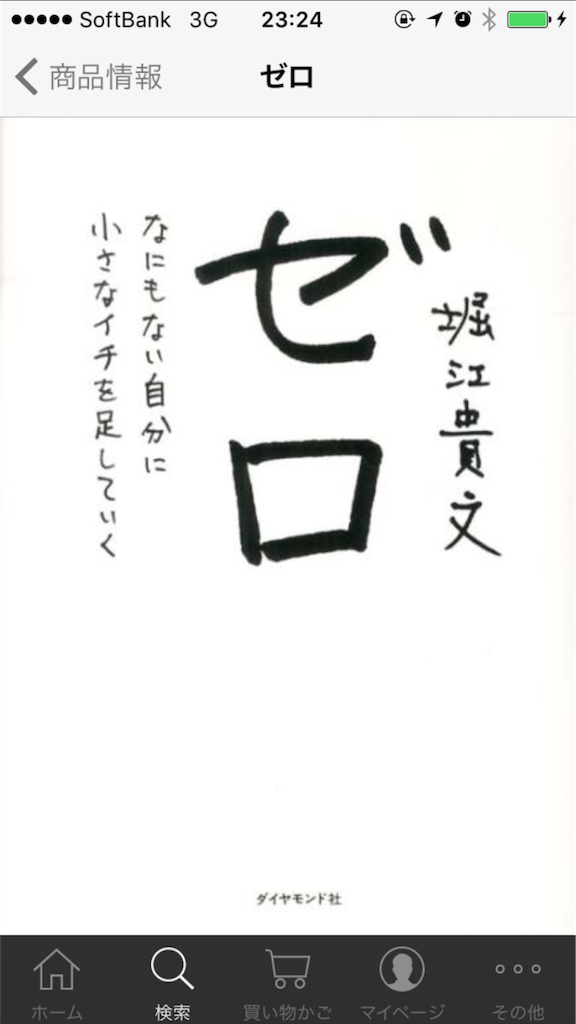 SoftBank 3G 23:24
商品情報 ゼロ
堀江貴文
ゼロ
なにもない自分に
小さなイチを足していく
ダイヤモンド社
ホーム 検索 買い物かご マイページ その他